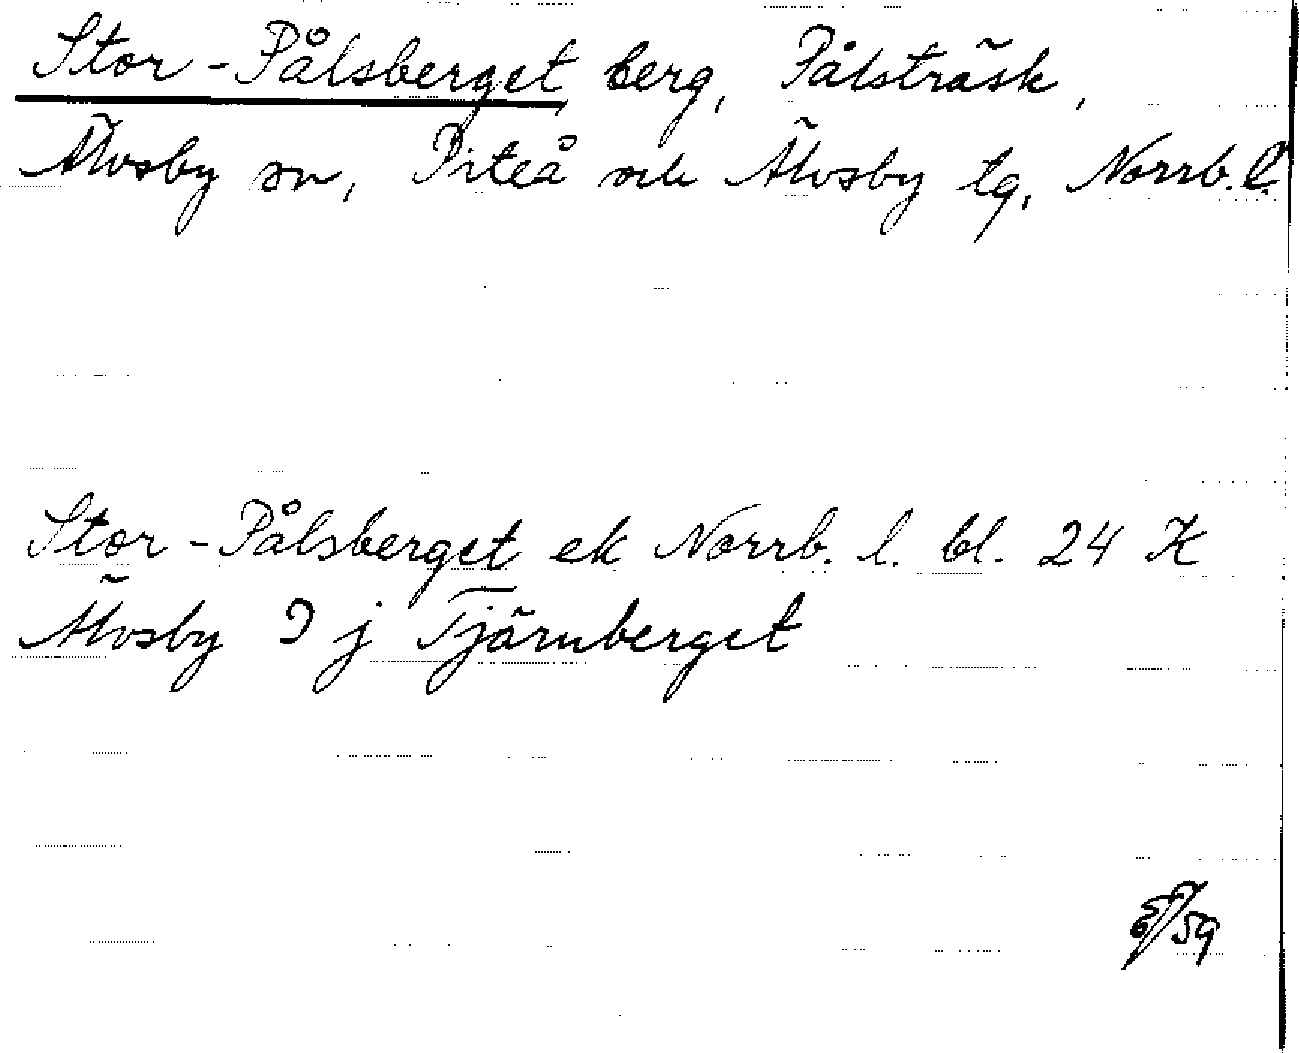 Stor-Pålsberget, berg, Pålsträsk,
Älvsby sn, Piteå och Älvsby tg, Norrb. l.
Stor-Pålsberget ek Norrb. l. bl. 24 K
Älvsby J j Tjärnberget
59